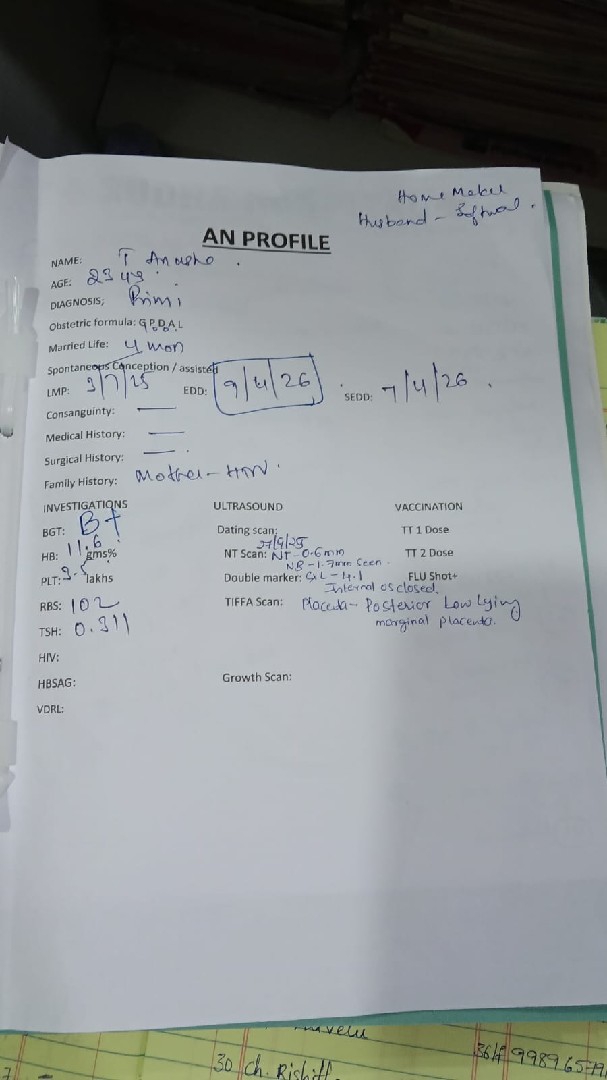 Home Maker
Husband -
AN PROFILE
NAME: T Anusha .
AGE: 23 yrs
DIAGNOSIS; Primi
Obstetric formula: G P D A L
Married Life: 4 mon
Spontaneous Conception / assisted
LMP: 3/7/25 EDD: 9/4/26 SEDD: 7/4/26 .
Consanguinty: —
Medical History: —
Surgical History: —
Family History: Mother - HTN .
INVESTIGATIONS ULTRASOUND VACCINATION
BGT: B+ Dating scan: TT 1 Dose
27/9/25
HB: 11.6 gms% NT Scan: NT - 0.6mm TT 2 Dose
NB - 1.7mm Seen .
PLT: lakhs Double marker: CL - 4.1 FLU Shot+
Internal os closed.
RBS: 102 TIFFA Scan: Placenta - Posterior Low lying
marginal placenta.
TSH: 0.311
HIV:
HBSAG: Growth Scan:
VDRL:
30 Ch. Rishitt